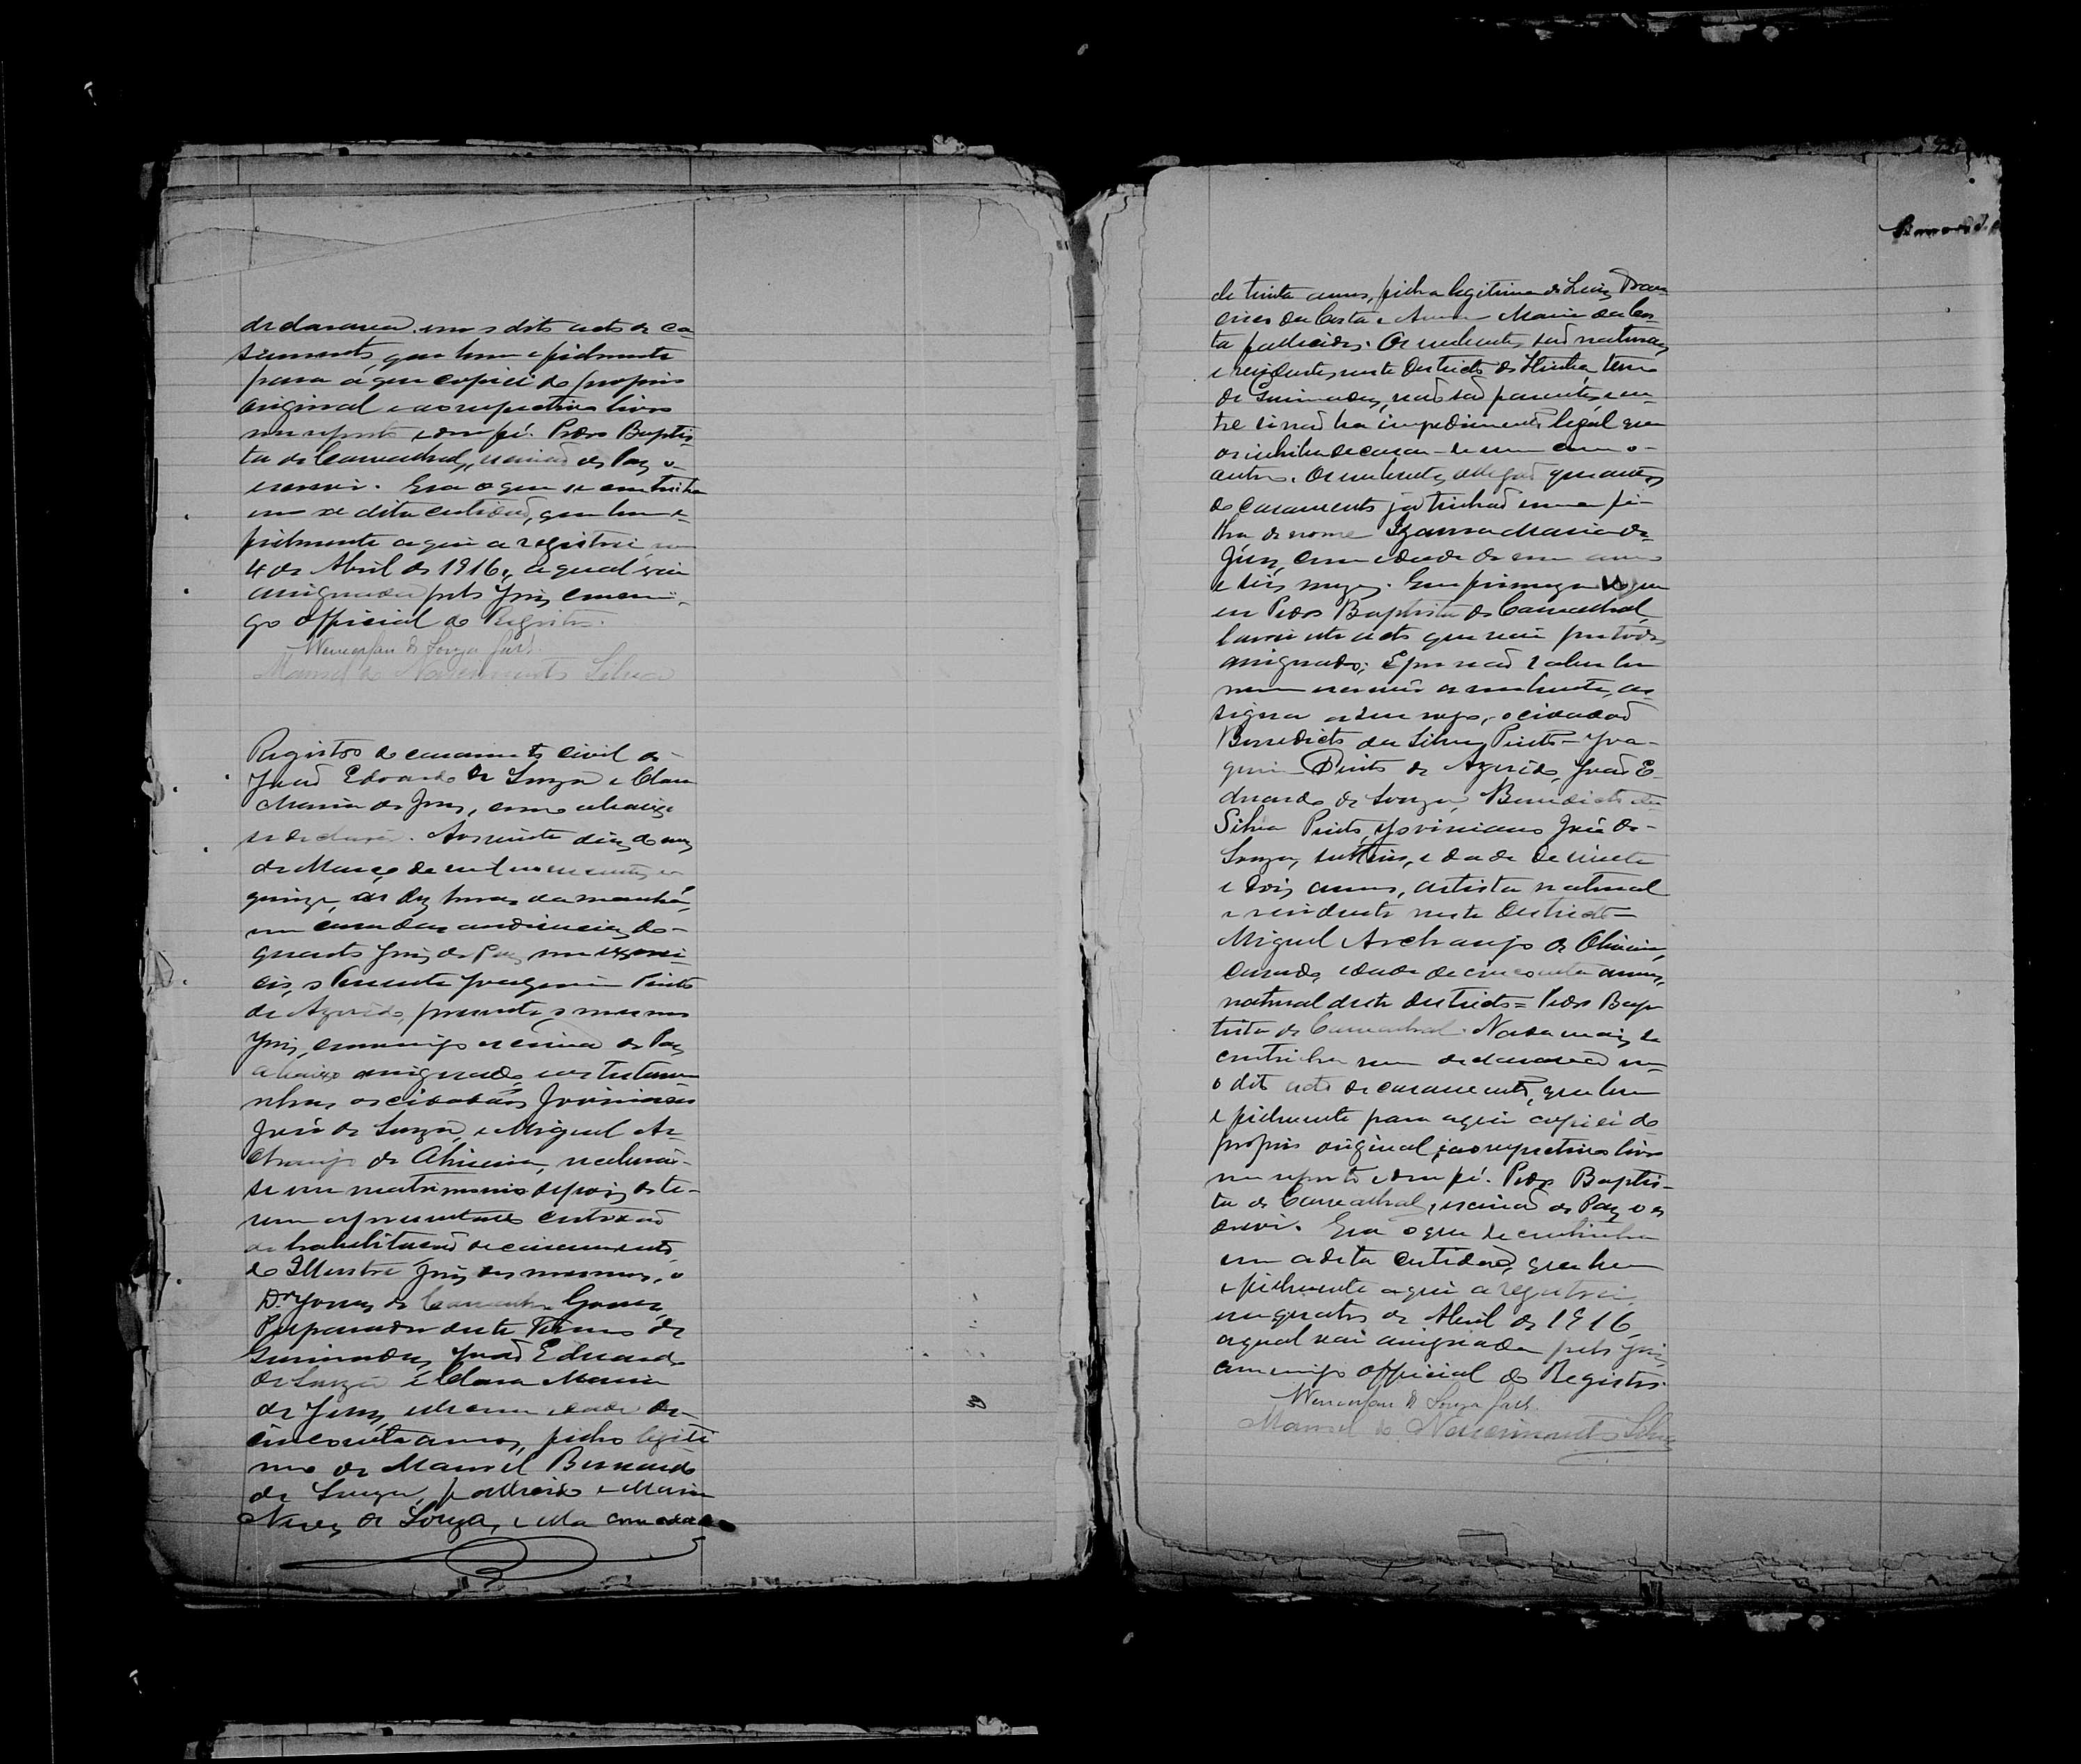 declaração em o dito acto de ca-
samento, que bem e fielmente
para aqui copiei do proprio
original e ao respectivo livro
me reporto e dou fé. Pedro Baptis-
ta de Carvalhal, escrivão de Paz o
escrevi. Era o que se continha
em se dita certidão, que bem e
fielmente aqui a registrei, em
4 de Abril de 1916, a qual vai
assignada pelo Juiz commi-
go official do Registro.
de Souza
Manoel do Nascimento Silva
Registro de casamento civil de
João Edoardo de Souza e Clara
Maria de Jesus, como abaixo
se declara. Aos vinte dias do mez
de Março de mil novecentos e
quinze, as dez horas da manhã,
em casa das audiencias do
quarto Juiz de Paz em exerci-
cio, o Tenente Joaquim Pinto
de Azevêdo, presente o mesmo
Juiz, commigo escrivão de Paz
abaixo assignado, e as testemu-
nhas os cidadãos Joviniano
José de Souza, e Miguel Ar-
chanjo de Oliveira, receberão-
se em matrimonio depois de te-
rem apresentado certidão
de habilitação de casamento,
do Illustre Juiz dos mesmos, o
Dr. Jonas de Gomes,
Preparador deste Termo de
João Eduardo
de Souza e Clara Maria
de Jesus, elle com idade de
cincoenta annos, filho legiti
mo de Manoel Bernardo
de Souza, fallecido e Maria
Neves de Souza, e ella com edade
de trinta annos, filha legitima de Luiz Fran
cisco da Costa e Anna Maria da Cos-
ta fallecidos. Os nubentes são naturaes
e residentes neste Districto de termo
de não são parentes, e en-
tre si não ha impedimento legal que
os inhiba de casar-se um com o
outro. Os nubentes allegão que antes
do casamento já tinhão uma fi-
lha de nome Maria de
Jesus, com idade de um anno
e seis mezes. Em firmeza do que
eu Pedro Baptista de Carvalhal,
lavrei este acto que vai por todos
assignado; E por não saber ler
nem escrever a nubente, as-
signa a seu rogo, o cidadão
Benedicto da Silva Pinto = Joa-
quim Pinto de Azevêdo, João E-
duardo de Souza, Benedicto da
Silva Pinto, Joviniano José de
Souza, solteiro, edade de vinte
e dois annos, artista natural
e residente neste Districto =
Miguel Archanjo de Oliveira,
casado, edade de cincoenta annos,
natural deste districto = Pedro Bap
tista de Carvalhal. Nada mais se
continha nem declaração em
o dito acto de casamento, que bem
e fielmente para aqui copiei do
proprio original, e ao respectivo livro
me reporto e dou fé. Pedro Baptis-
ta de Carvalhal, escrivão de Paz o es
crevi. Era o que se continha
em a dita certidão, que bem
e fielmente aqui a registrei,
em quatro de Abril de 1916,
a qual vai assignada pelo Juiz,
commigo official do Registro.
de Souza
Manoel do Nascimento Silva